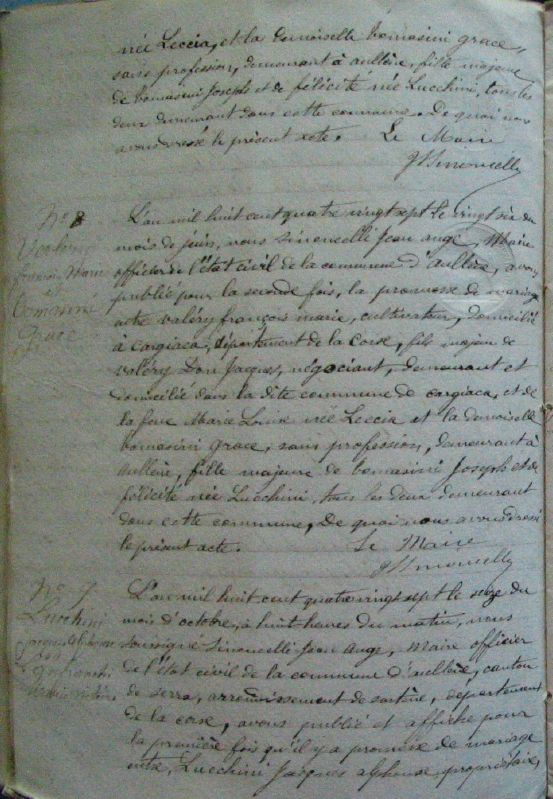 née Leccia, et la demoiselle Comasini grace,
sans profession, demeurant à aullène, fille majeure
de Comasini Joseph et de félicité née Lucchini, tous les
deux demeurant dans cette commune. De quoi nous
avons dressé le présent acte. Le Maire
Simoncelli
No 8
Valery
françois Marie
et
Comasini
Grace
L'an mil huit cent quatre vingt sept le vingt six du
mois de juin, nous Simoncelli Jean ange, Maire
officier de l'état civil de la commune d'aullène, avons
publié pour la seconde fois, la promesse de mariage
entre valéry françois marie, cultivateur, domicilié
à cargiaca, département de la Corse, fils majeur de
valéry Don Jacques, négociant, demeurant et
domicilié dans la dite commune de cargiaca, et de
la feue Marie Louise née Leccia et la demoiselle
Comasini grace, sans profession, demeurant à
aullène, fille majeure de Comasini Joseph et de
félicité née Lucchini, tous les deux demeurant
dans cette commune, De quoi nous avons dressé
le présent acte. Le Maire
Simoncelli
No 7
Lucchini
Jacques alphonse
L'an mil huit cent quatre vingt sept le seize du
mois d'octobre, à huit heures du matin, nous
soussigné Simoncelli Jean Ange, Maire officier
de l'état civil de la commune d'aullène, canton
de serra, arrondissement de sartène, département
de la corse, avons publié et affiché pour
la première fois qu'il y a promesse de mariage
entre, Lucchini Jacques alphonse, propriétaire,